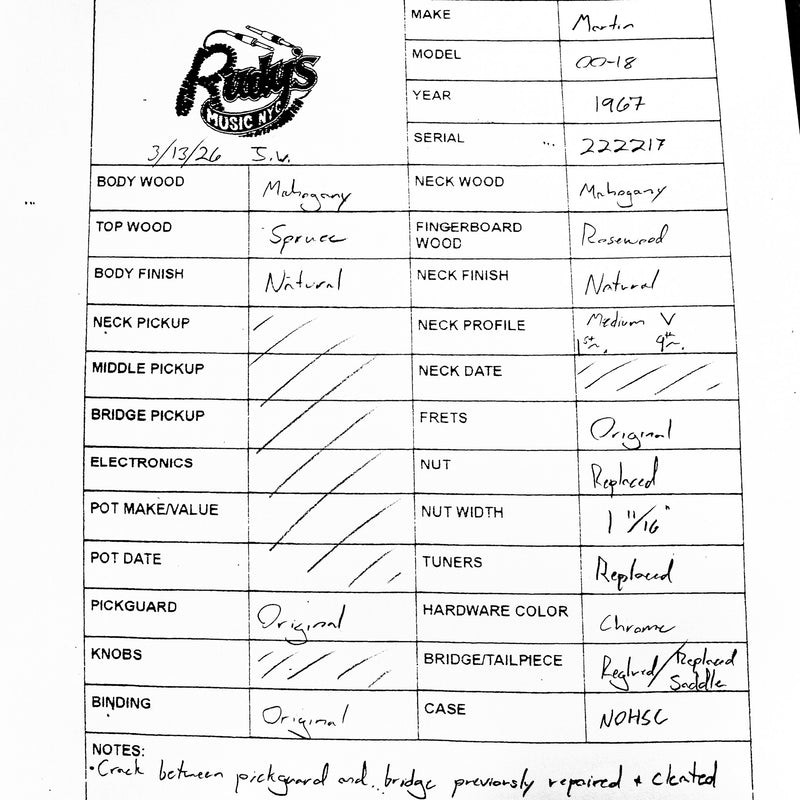 Rudy's
MUSIC NYC
3/13/26 J.V.
MAKE Martin
MODEL 00-18
YEAR 1967
SERIAL 222217
BODY WOOD Mahogany NECK WOOD Mahogany
TOP WOOD Spruce FINGERBOARD WOOD Rosewood
BODY FINISH Natural NECK FINISH Natural
NECK PICKUP NECK PROFILE Medium V
1st 9th
MIDDLE PICKUP NECK DATE
BRIDGE PICKUP FRETS Original
ELECTRONICS NUT Replaced
POT MAKE/VALUE NUT WIDTH 1 11/16"
POT DATE TUNERS Replaced
PICKGUARD Original HARDWARE COLOR Chrome
KNOBS BRIDGE/TAILPIECE Reglued/Replaced Saddle
BINDING Original CASE NOHSC
NOTES:
•Crack between pickguard and bridge previously repaired + cleated